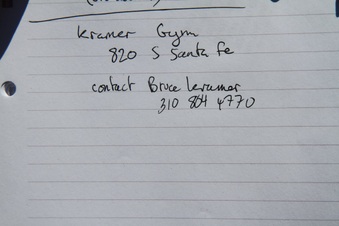 Kramer Gym
820 S Santa Fe
contact Bruce Kramer
310 804 4770